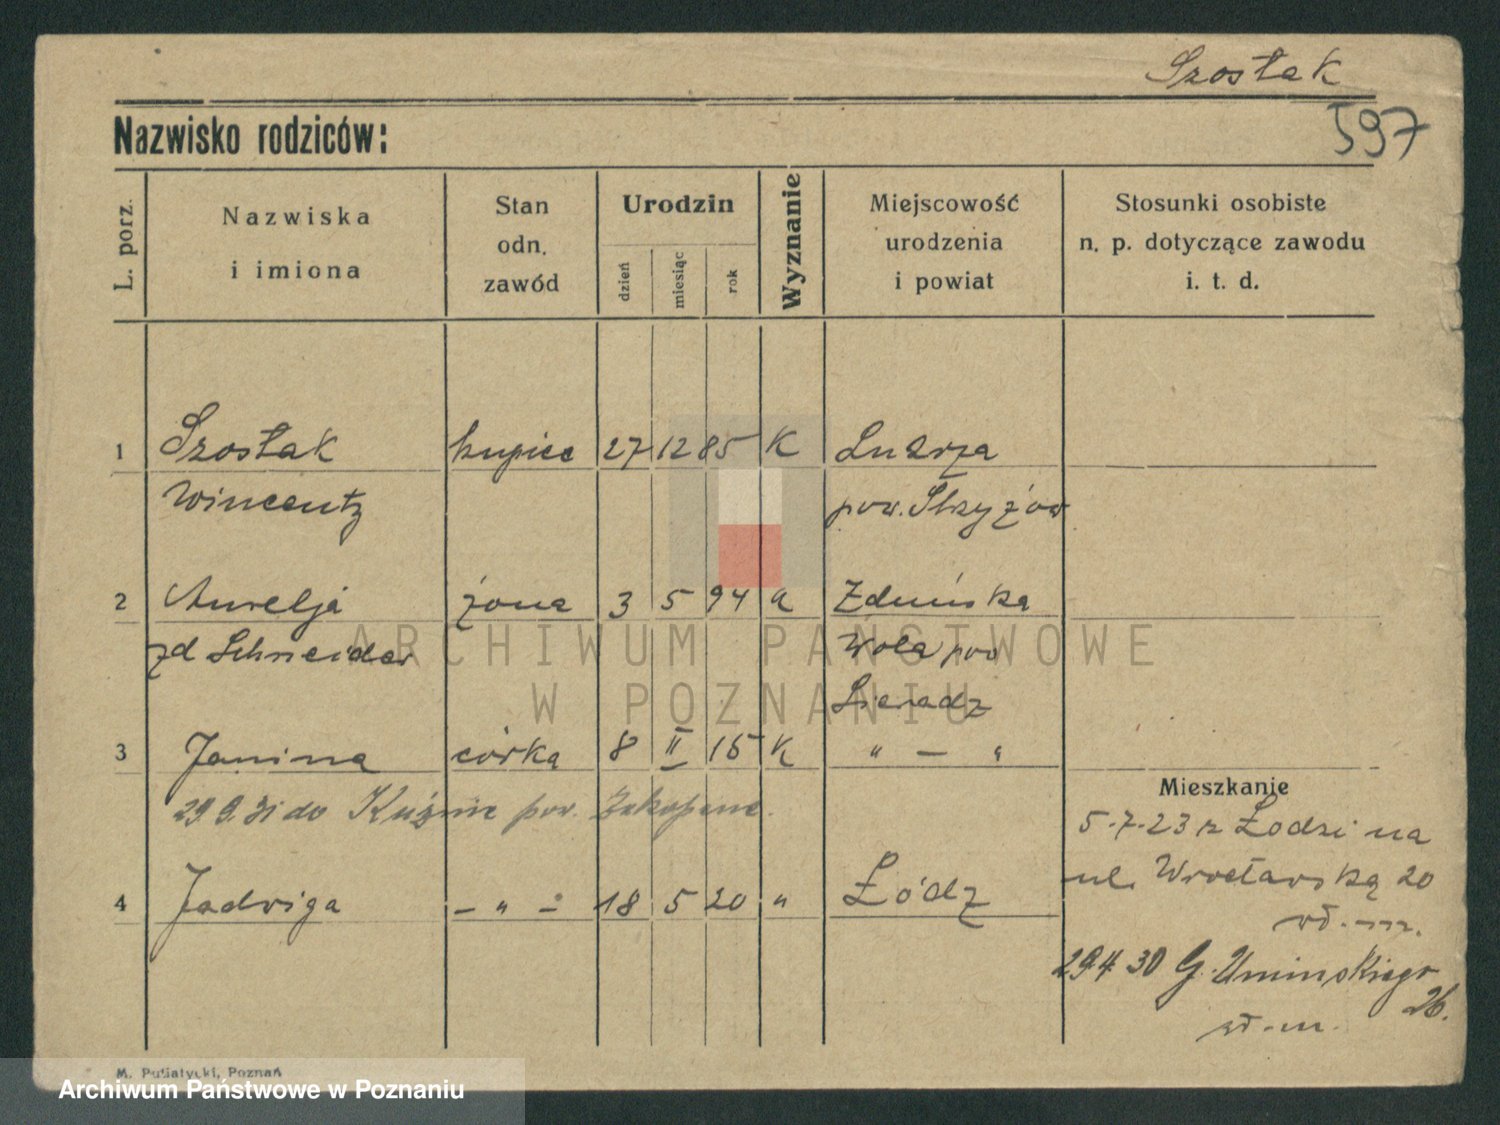 Szostak
597
Nazwisko rodziców:
L. porz.
Nazwiska
i imiona
Stan
odn.
zawód
Urodzin
dzień
miesiąc
rok
Wyznanie
Miejscowość
urodzenia
i powiat
Stosunki osobiste
n. p. dotyczące zawodu
i. t. d.
1 Szostak kupiec 27 12 85 K
Wincenty pow. Strzyżów
2 Aurelja żona 3 5 94 a Zduńska
zd Schneider Wola pow
Sieradz
3 Janina córka 8 II 15 K " — "
Mieszkanie
29.9.31 do Kuźnic pow. Zakopane.
5.7.23 z Łodzi na
ul. Wrocławską 20
wł. m.
4 Jadwiga — " — 18 5 20 " Łódź
29.4 30 G. Umińskiego
26.
wł. m.
M. Putiatycki, Poznań
ARCHIWUM PAŃSTWOWE
W POZNANIU
Archiwum Państwowe w Poznaniu